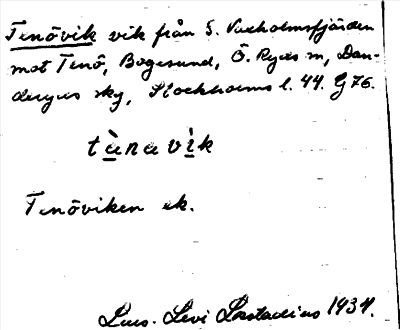 Tenövik vik från S. Vaxholmsfjärden
mot Tenö, Bogesund, Ö. Ryds sn, Dan-
deryds skg, Stockholms l. 44. G 76.
tànavìk
Tenöviken ek.
Levi Laestadius 1934.